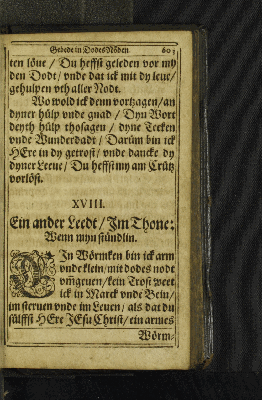 Gebede in Dodes Nöden 603
ten löue / Du heffst geleden vor my
den Dodt / vnde dat ick mit dy leue /
gehulpen vth aller Nodt.
Wo wold ick denn vortzagen / an
dyner hülp vnde gnad / Dyn Wort
deyth hülp thosagen / dyne Tecken
vnde Wunderdadt / Darüm bin ick
HEre in dy getrost / vnde dancke dy
dyner Leeue / Du heffst my am Crütz
vorlöst.
XVIII.
Ein ander Leedt / Jm Thone:
Wenn myn stündlin.
EJn Wörmken bin ick arm
vnde klein / mit dodes node
vmgeuen / kein Trost weet
ick in Marck vnde Bein /
im steruen vnde im Leuen / als dat du
sülffst HEre JEsu Christ / ein armes
Wörm-